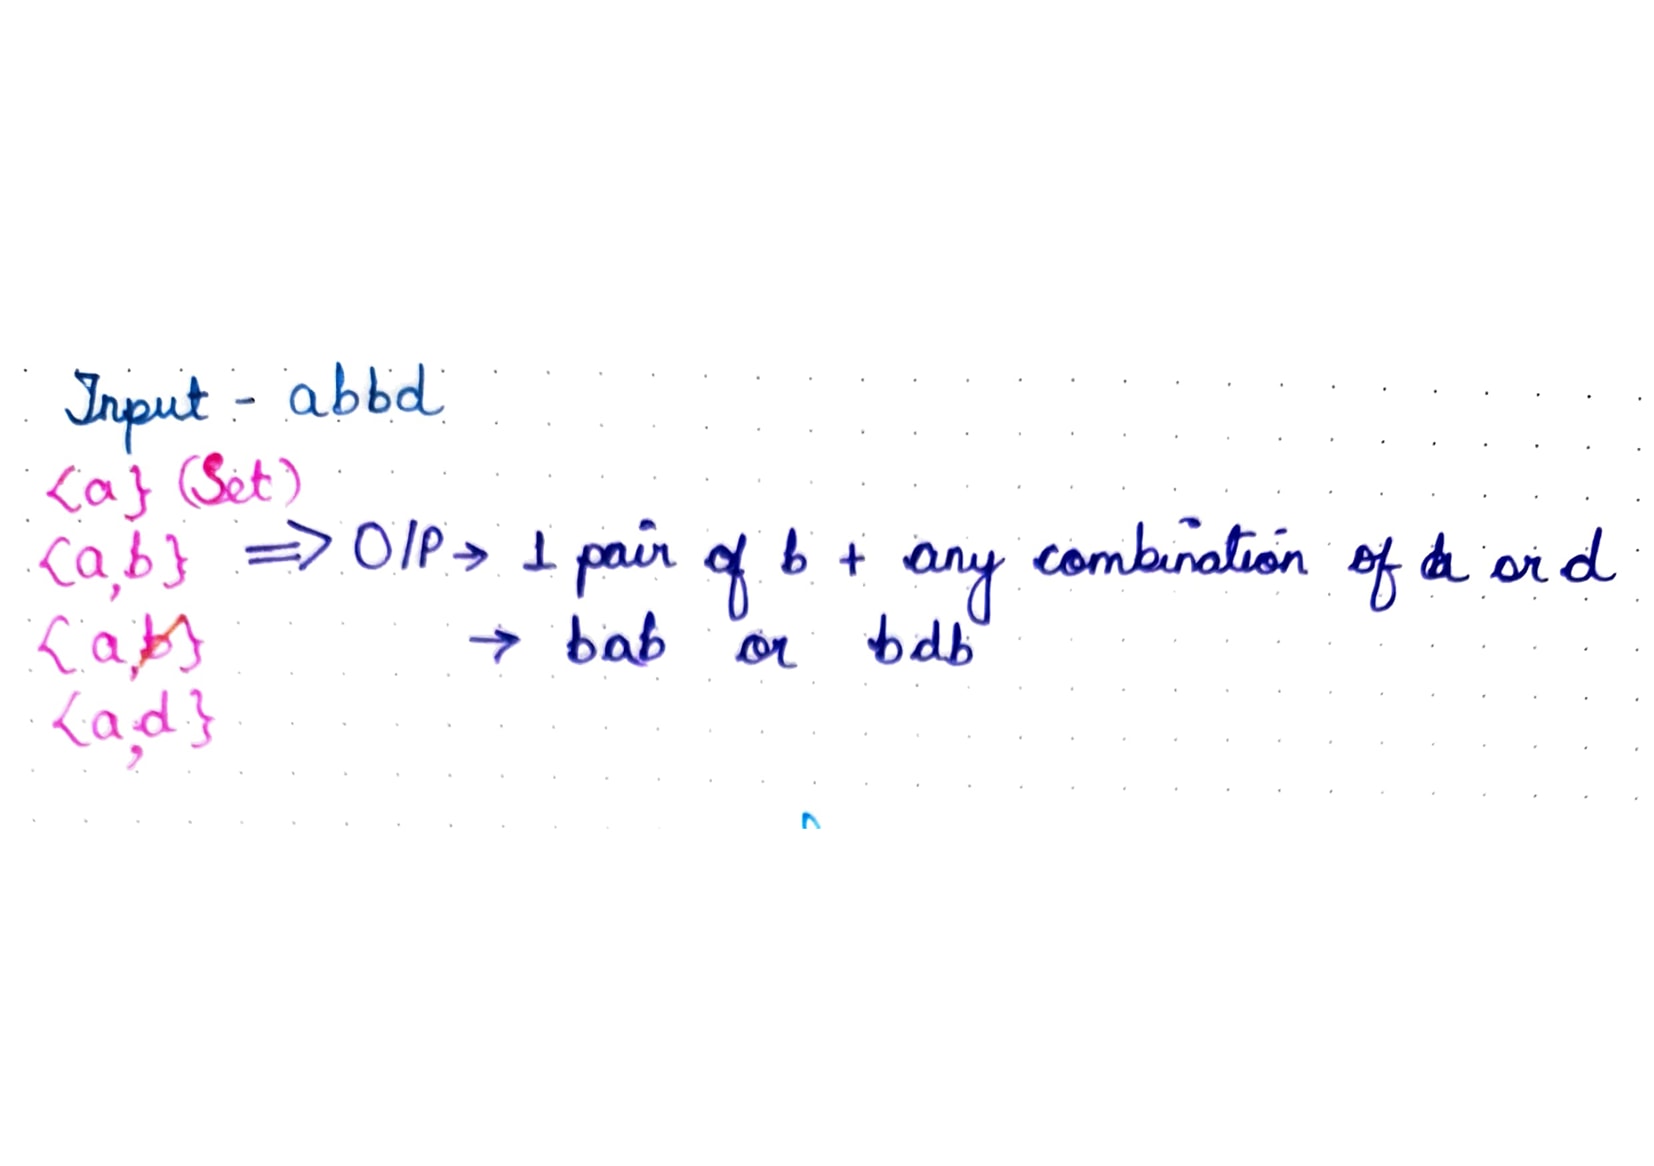 Input - abbd
{a} (Set)
{a,b} => O/P → 1 pair of b + any combination of a or d
{a,b} → bab or bdb
{a,d}